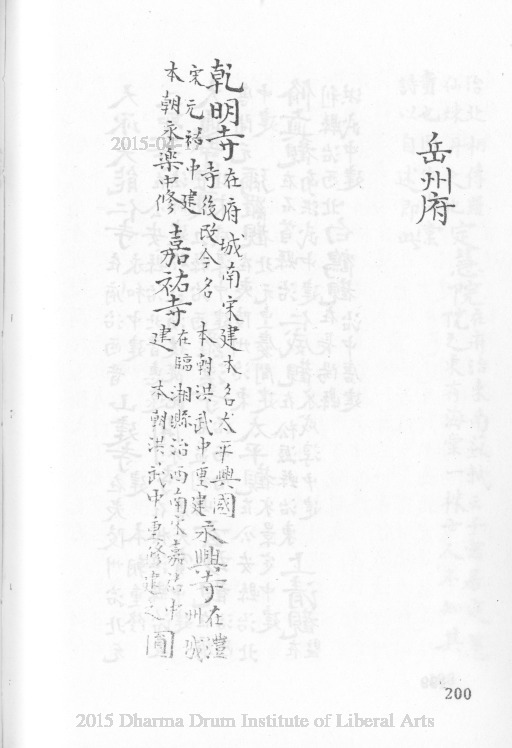 岳州府
乾明寺在府城南宋建本名太平興國
寺後改今名 本朝洪武中重建永興寺在澧
州城
宋元祐中建
本朝永樂中修嘉祐寺在臨湘縣治西南宋嘉祐中
建 本朝洪武中重修造之圓
200
2015 Dharma Drum Institute of Liberal Arts